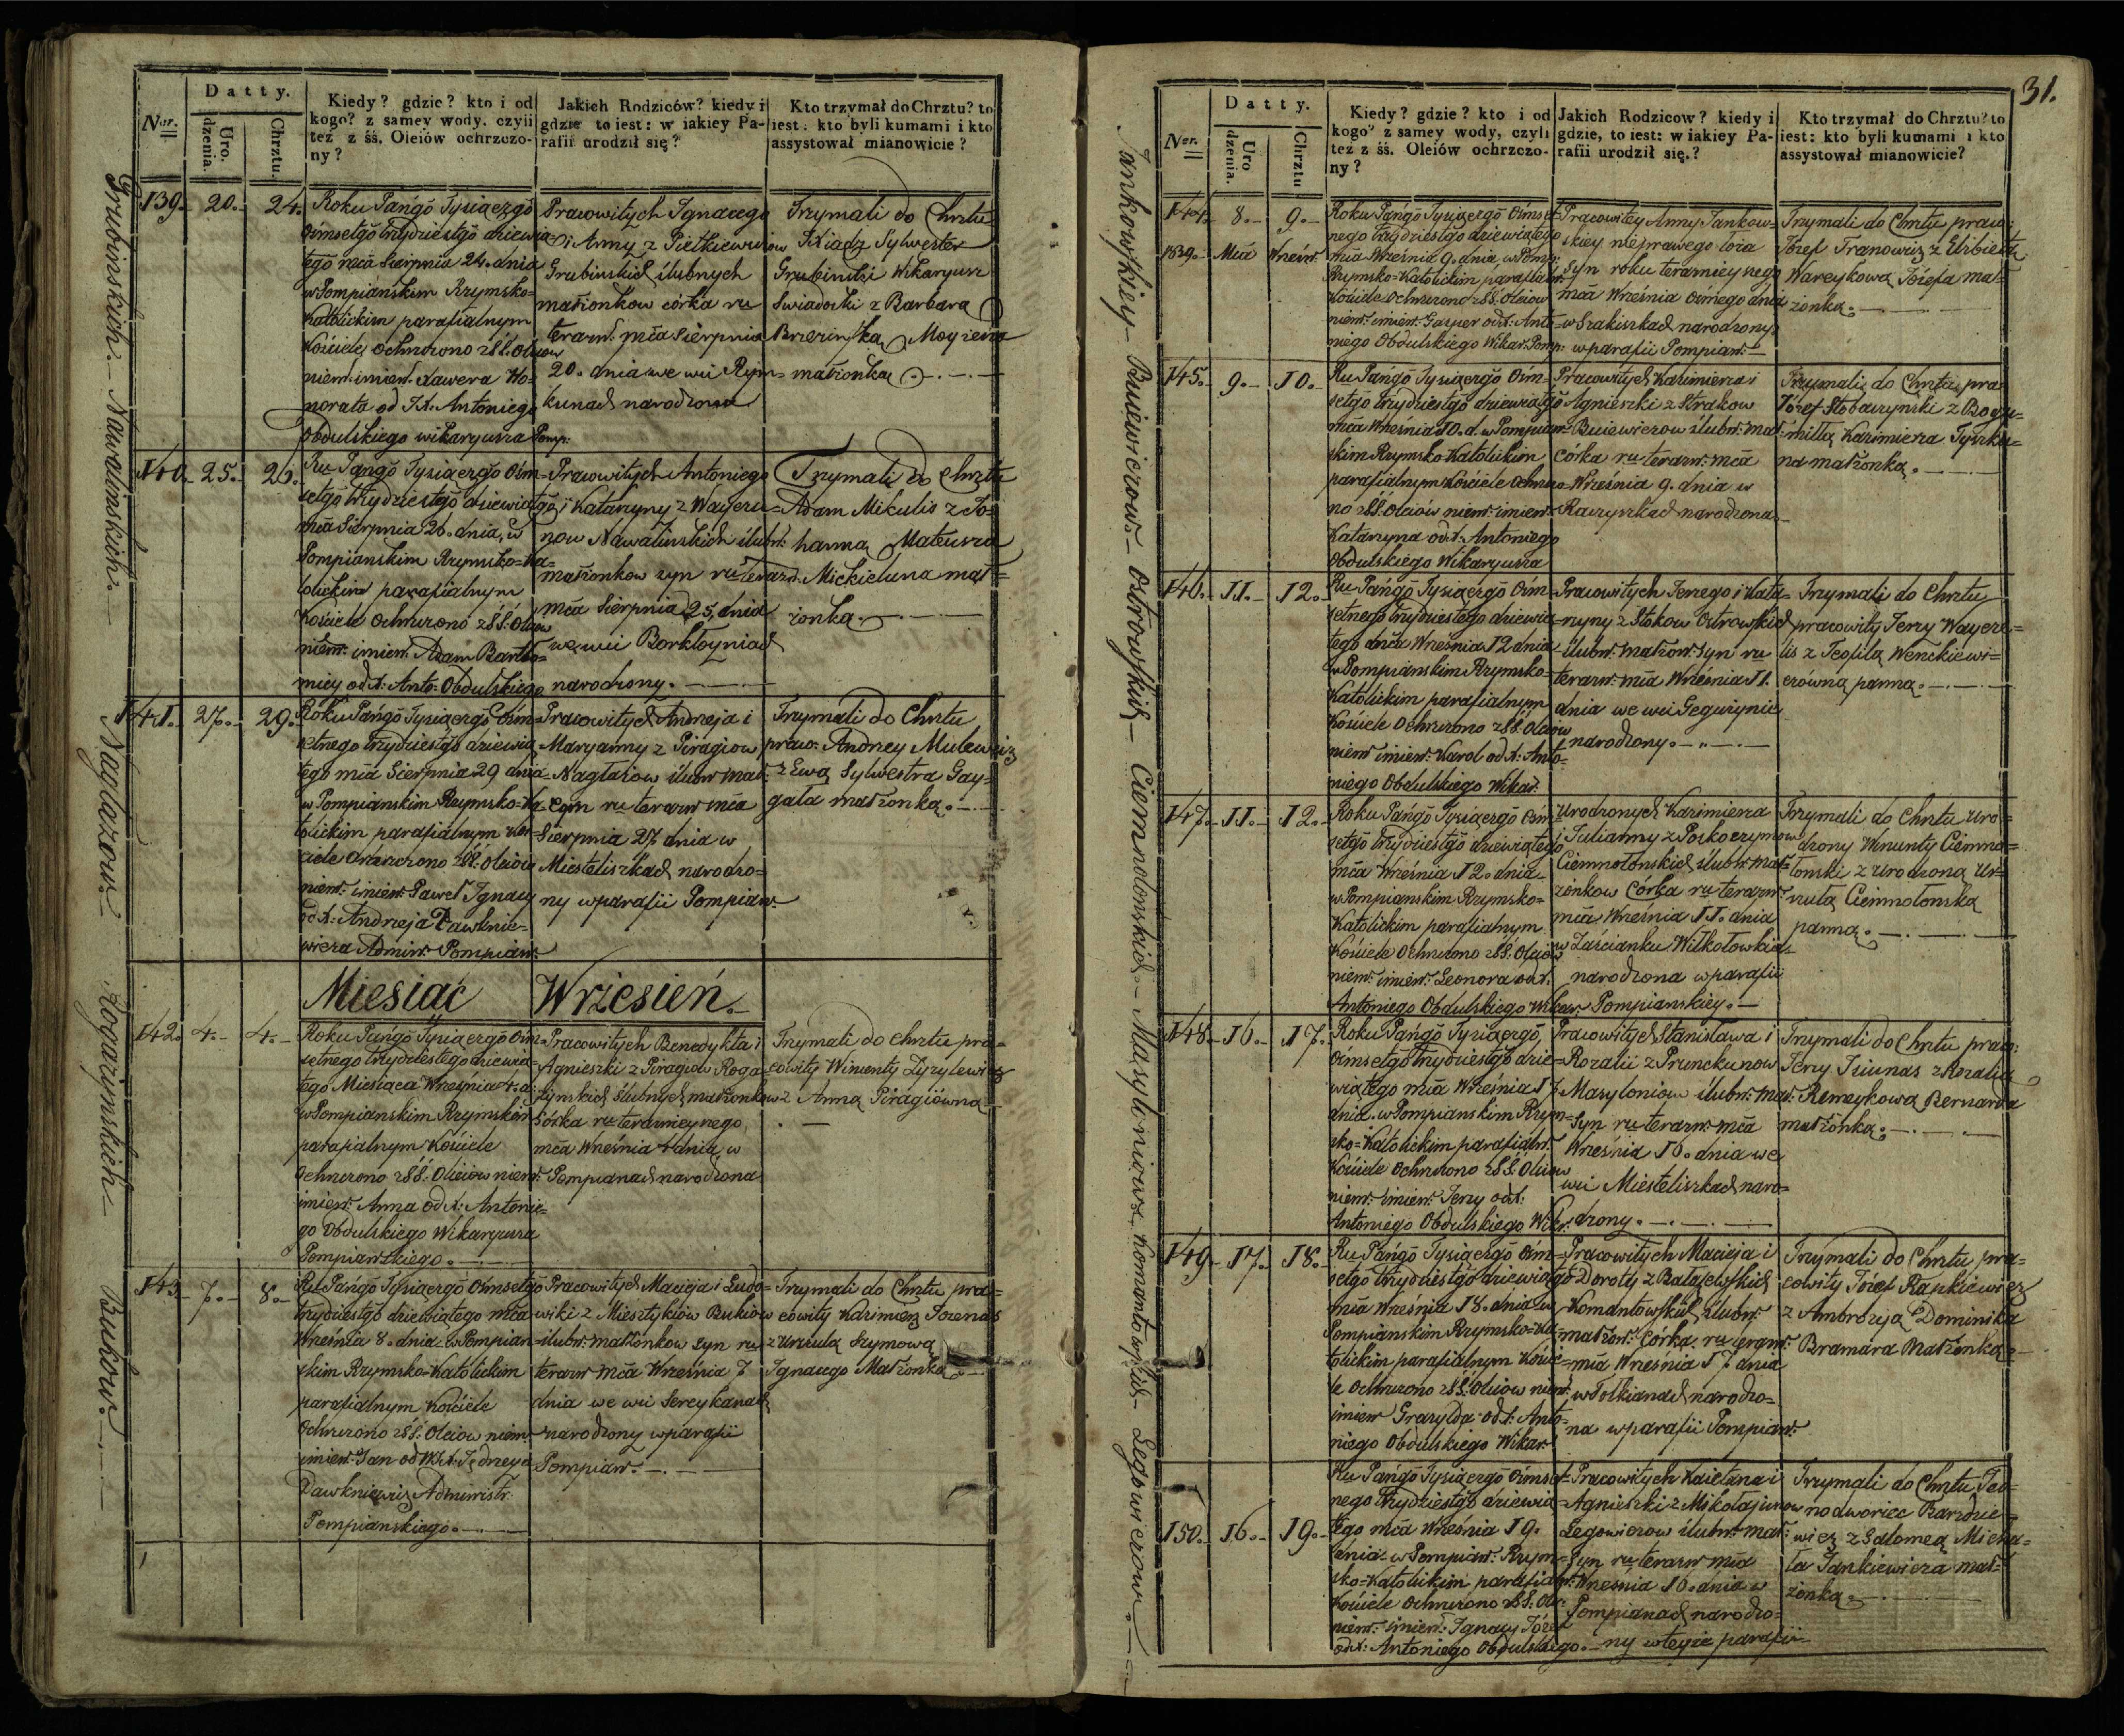 Datty.
Ner.
Uro.
dzenia.
Chrztu.
Kiedy? gdzie? kto i od
kogo? z samey wody. czyli
też z śś. Oleiów ochrzczo-
ny?
Jakich Rodziców? kiedy i
gdzie to iest: w iakiey Pa-
rafii urodził się?
Kto trzymał do Chrztu? to
iest: kto byli kumami i kto
assystował mianowicie?
Grubinskich. – Nawalinskich. –
Naglazow –
Bukow. –
139. 20. 24.
Roku Pańgō Tysiączgō
Ośmsetgō trzydziestgō dziewią
tego mca Sierpnia 24. dnia
w Pompianskim Rzymsko=
Katolickim parafialnym
Kościele Ochrzczono z SS. Oleiow
niem. imien. Xawera Ho=
norata od JX. Antoniego
Obdulskiego wikaryusza Pomp:
Pracowitych Ignacego
i Anny z Pietkiewiczow
Grubinskich ślubnych
małżonkow córka ru
teraz. mca Sierpnia
20. dnia we wsi Rym=
kunach narodzona
Trzymali do Chrztu
Xiądz Sylwester
Grubinski Wikaryusz
Swiadoski z Barbarą
Brzezinską
małżonką
140. 25. 26.
Ru Pańgō Tysiączgō Ośm=
setgō trzydziestgō dziewiątgō
mca Sierpnia 26. dnia, w
Pompianskim Rzymsko=Ka=
tolickim parafialnym
Kościele Ochrzczono z SS. Oleiow
niem. imien. Adam Bartło=
miey od X. Anto. Obdulskiego
Pracowitych Antoniego
i Katarzyny z Wayczu=
now Nawalinskich ślubn.
małżonkow syn ru teraz.
mca Sierpnia 25. dnia
we wsi Borkłoyniach
narodzony. –
Trzymali do Chrztu
Adam Mikulis z Jo=
hanną Mateusza
Mickieluna mał=
żonką. –
141. 27. 29.
Roku Pańgō Tysiączgō Ośm=
setnego trzydziestgō dziewią
tego mca Sierpnia 29 dnia
w Pompianskim Rzymsko=Ka
tolickim parafialnym Koś=
ciele Ochrzczono z SS. Oleiow
niem. imien. Paweł Ignacy
od X. Andrzeja Dawknie=
wicza Admin. Pompian.
Pracowitych Andrzeja i
Maryanny z Piragiow
Naglazow ślubn. mał:
syn ru teraz. mca
Sierpnia 27 dnia w
Miesteliszkach narodzo=
ny w parafii Pompian.
Trzymali do Chrztu
praco. Andrzey Mulewicz
z Ewą Sylwestra Gay=
gała małżonką. –
Miesiąc Wrzesień. –
142. 4. 4.
Roku Pańgō Tysiączgō Ośm=
setnego trzydziestego dziewią=
tego Miesiąca Września 4. d:
w Pompianskim Rzymskim
parafialnym Kościele
Ochrzczono z SS. Oleiow niem.
imien. Anna od X. Antonie=
go Obdulskiego Wikaryusza
Pompianskiego. –
Pracowitych Benedykta i
Agnieszki z Piragiow Roga=
żynskich ślubnych małżonkow
córka ru teraznieyszego
mca Września 4 dnia w
Pompianach narodzona
Trzymali do Chrztu pra=
cowity Wincenty Zyzylewicz
z Anną Piragiówną
143. 7. 8.
Ru Pańgō Tysiączgō Ośmsetgō
trzydziestgō dziewiątego mca
Września 8. dnia w Pompian=
skim Rzymsko=Katolickim
parafialnym Kościele
Ochrzczono z SS. Oleiow niem.
imien. Jan od X. Jędrzeya
Dawkniewicz Administr.
Pompianskiego. –
Pracowitych Macieja i Ludo=
wiki z Miesztykiów Bukiow
ślubn. małżonkow syn ru
teraz. mca Września 7
dnia we wsi Sereykanach
narodzony w parafii
Pompian. –
Trzymali do Chrztu pra=
cowity Kazimierz Jozenas
z Urszulą Szymową
Ignacego Małżonką. –
31.
Datty.
Ner.
Uro
dzenia.
Chrztu
Kiedy? gdzie? kto i od
kogo? z samey wody, czyli
też z śś. Oleiów ochrzczo-
ny?
Jakich Rodzicow? kiedy i
gdzie, to iest: w iakiey Pa-
rafii urodził się.?
Kto trzymał do Chrztu? to
iest: kto byli kumami i kto
assystował mianowicie?
Jankowskiey – Buiewiczow. – Ostrowskich – Ciemnolonskich – Masyloniow. – Komantowskich – Legowiczow. –
144. 8. 9.
1839. Mca Wrześn.
Roku Pańgō Tysiączgō Ośmset=
nego trzydziestgō dziewiątego
mca Września 9. dnia w Pomp:
Rzymsko=Katolickim parafialn.
Kościele Ochrzczono z SS. Oleiow
niem. imien. Gasper od X. Anto=
niego Obdulskiego Wikar. Pomp:
Pracowitey Anny Jankow=
skiey nieprawego łoża
syn roku teraznieyszego
mca Września ósmego dnia
w Szakiszkach narodzony
w parafii Pompian. –
Trzymali do Chrztu praco:
Józef Jranowicz z Elżbietą
Wareykową Józefa mał=
żonką. –
145. 9. 10.
Ru Pańgō Tysiączgō Ośm=
setgo trzydziestgō dziewiątgō
mca Września 10. d. w Pompian=
skim Rzymsko=Katolickim
parafialnym Kościele Ochrzczo=
no z SS. Oleiów niem. imien.
Katarzyna od X. Antoniego
Obdulskiego Wikaryusza
Pracowitych Kazimierza i
Agnieszki z Strakow
Buiewiczow ślubn. mał:
córka ru teraz. mca
Września 9. dnia w
Raczyszkach narodzona
Trzymali do Chrztu pra:
Józef Słobaczynski z Bogu=
miłłą Kazimierza Tyszku=
na małżonką. –
146. 11. 12.
Ru Pańgō Tysiączgō Ośm=
setnego trzydziestego dziewią=
tego mca Września 12 dnia
w Pompianskim Rzymsko=
Katolickim parafialnym
Kościele Ochrzczono z SS. Oleiow
niem. imien. Karol od X. Anto=
niego Obdulskiego Wikar.
Pracowitych Jerzego i Kata=
rzyny z Stokow Ostrowskich
ślubn. małżon. syn ru
teraz. mca Września 11.
dnia we wsi Gegużynie
narodzony. –
Trzymali do Chrztu
pracowity Jerzy Waycze=
lis z Teofilą Wenckiewi=
czówną panną. –
147. 11. 12.
Roku Pańgō Tysiączgō Ośm=
setgo trzydziestgō dziewiątego
mca Września 12. dnia
w Pompianskim Rzymsko=
Katolickim parafialnym
Kościele Ochrzczono z SS. Oleiow
niem. imien. Leonora od X.
Antoniego Obdulskiego Wikar.
Urodzonych Kazimierza
i Julianny z Poskoczymow
Ciemnolonskich ślubn. mał=
żonkow Corka ru teraz.
mca Września 11. dnia
w Zaścianku Wilkołowkia
narodzona w parafii
Pompianskiey. –
Trzymali do Chrztu Uro=
dzony Wincenty Ciemno=
łonski z Urodzoną Ur=
szulą Ciemnołonską
panną. –
148. 16. 17.
Roku Pańgō Tysiączgō,
Ośmsetgō trzydziestgō dzie=
wiątego mca Września 17
dnia w Pompianskim Rzym=
sko=Katolickim parafialn.
Kościele Ochrzczono z SS. Oleiow
niem. imien. Jerzy od X.
Antoniego Obdulskiego Wikr.
Pracowitych Stanisława i
Rozalii z Prunckunow
Masyloniow ślubn. mał.
syn ru teraz. mca
Września 16. dnia we
wsi Miesteliszkach naro=
dzony. –
Trzymali do Chrztu praco:
Jerzy Jsiunas z Rozalią
Remeykową Bernarda
małżonką. –
149. 17. 18.
Ru Pańgō Tysiączgō Ośm=
setgo trzydziestgō dziewiątgō
mca Września 18. dnia w
Pompianskim Rzymsko=Ka=
tolickim parafialnym Kości=
le Ochrzczono z SS. Oleiow niem.
imien. Grazylda od X. Anto=
niego Obdulskiego Wikar.
Pracowitych Macieja i
Doroty z Bałajewskich
Komantowskich ślubn.
małżon. Córka ru teraz.
mca Września 17 dnia
w Tołkianach narodzo=
na w parafii Pompian.
Trzymali do Chrztu pra=
cowity Józef Rankiewicz
z Ambrozyą Dominika
Bramara Małżonką. –
150. 16. 19.
Ru Pańgō Tysiączgō Ośmset=
nego trzydziestgō dziewią
tego mca Września 19.
dnia w Pompian. Rzym=
sko=Katolickim parafialn.
Kościele Ochrzczono z SS. Ole:
niem. imien. Ignacy Józef
od X. Antoniego Obdulskiego. –
Pracowitych Kaietana i
Agnieszki z Mikołajunow
Legowiczow ślubn. mał:
syn ru teraz. mca
Września 16. dnia w
Pompianach narodzo=
ny w teyże parafii
Trzymali do Chrztu Jed=
nodworiec Barzdzie=
wicz z Salomeą Micha=
ła Jankiewicza mał=
żonką. –